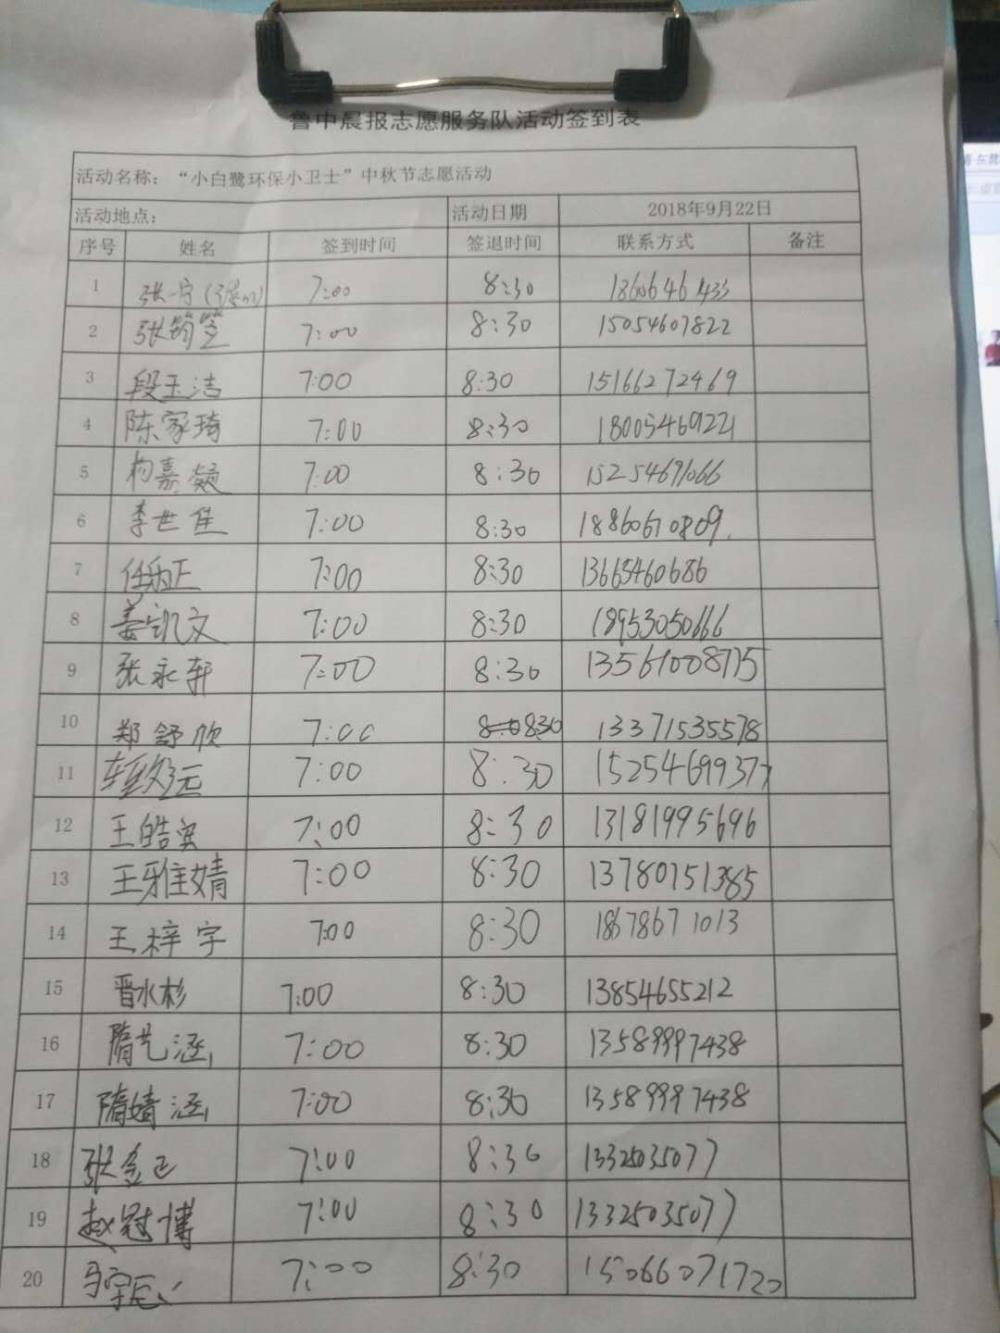 鲁中晨报志愿服务队活动签到表
活动名称：“小白鹭环保小卫士”中秋节志愿活动
活动地点： 活动日期 2018年9月22日
序号 姓名 签到时间 签退时间 联系方式 备注
1 张一宁 7:00 8:30
2 张筠笠 7:00 8:30 15054607822
3 段玉洁 7:00 8:30 15166272469
4 陈家琦 7:00 8:30 18005469221
5 7:00 8:30 15254671066
6 李世佳 7:00 8:30 18860610809
7 7:00 8:30 13665460686
8 姜凯文 7:00 8:30 18953050666
9 张永轩 7:00 8:30 13561008775
10 郑舒欣 7:00 8:30 13371535578
11 7:00 8:30 15254699377
12 王皓实 7:00 8:30 13181995696
13 王雅婧 7:00 8:30 13780751385
14 王梓宇 7:00 8:30 18678671013
15 晋水杉 7:00 8:30 13854655212
16 隋艺涵 7:00 8:30 13589997438
17 隋婧涵 7:00 8:30 13589997438
18 张金正 7:00 8:30 13325035077
19 赵冠博 7:00 8:30 13325035077
20 7:00 8:30 15066071720